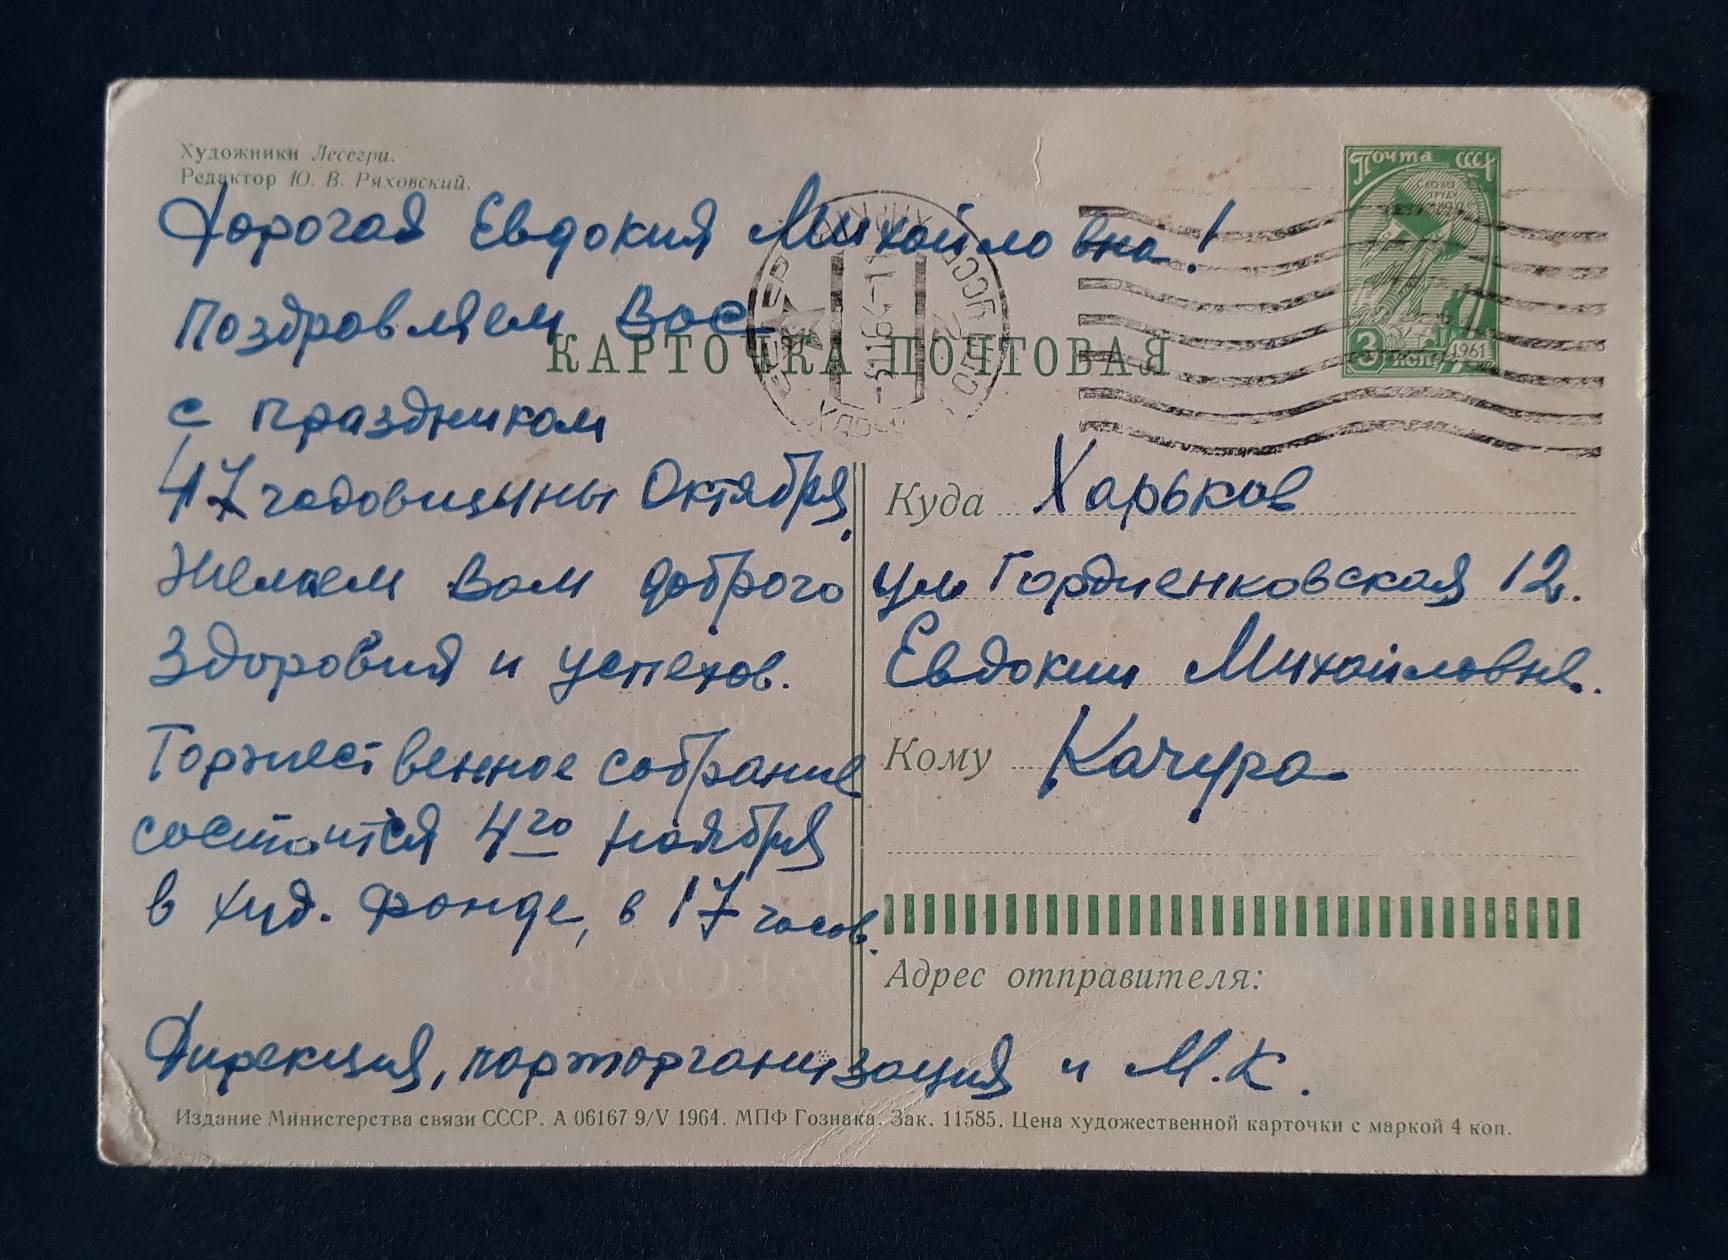 Художники Лесегри.
Редактор Ю. В. Ряховский.
Почта СССР
Слава
труду
и науке
3 коп. 1961
КАРТОЧКА ПОЧТОВАЯ
Дорогая Евдокия Михайловна!
Поздравляем Вас
с праздником
47 годовщины Октября.
Желаем Вам доброго
здоровия и успехов.
Торжественное собрание
состоится 4го ноября
в худ. фонде, в 17 часов.
Дирекция, парторганизация и М.К.
Куда Харьков
ул Гордиенковская 12.
Евдокии Михайловне.
Кому Качура
Адрес отправителя:
Издание Министерства связи СССР. А 06167 9/V 1964. МПФ Гознака. Зак. 11585. Цена художественной карточки с маркой 4 коп.